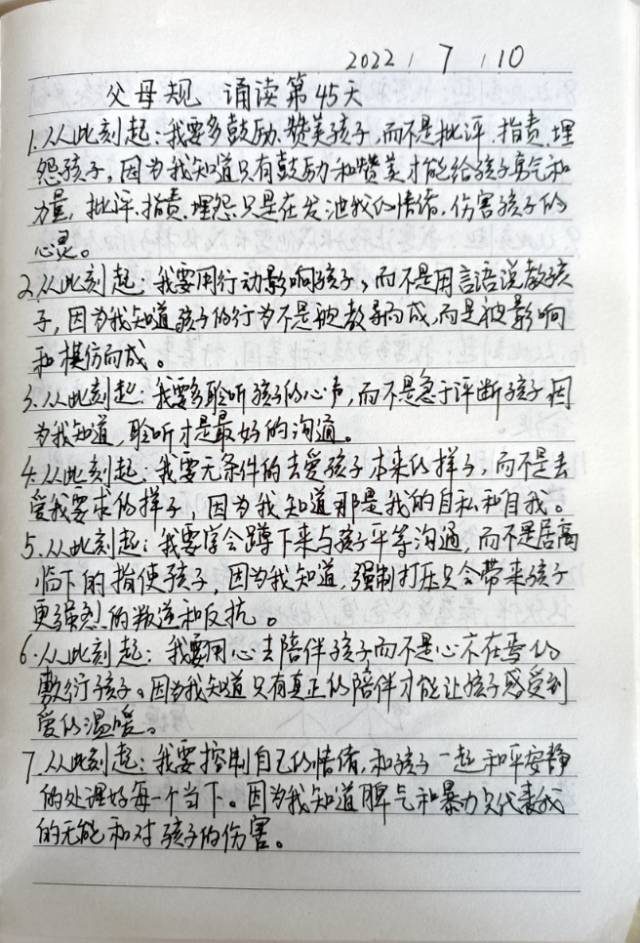 2022 / 7 / 10
父母规 诵读第45天
1.从此刻起:我要多鼓励、赞美孩子,而不是批评、指责、埋
怨孩子,因为我知道只有鼓励和赞美才能给孩子勇气和
力量,批评、指责、埋怨只是在发泄我的情绪,伤害孩子的
心灵。
2.从此刻起:我要用行动影响孩子,而不是用言语说教孩
子,因为我知道孩子的行为不是被教导而成,而是被影响
和模仿而成。
3.从此刻起:我要多聆听孩子的心声,而不是急于评断孩子,因
为我知道,聆听才是最好的沟通。
4.从此刻起:我要无条件的去爱孩子本来的样子,而不是去
爱我要求的样子,因为我知道那是我的自私和自我。
5.从此刻起:我要学会蹲下来与孩子平等沟通,而不是居高
临下的指使孩子,因为我知道,强制打压只会带来孩子
更强烈的叛逆和反抗。
6.从此刻起:我要用心去陪伴孩子而不是心不在焉的
敷衍孩子。因为我知道只有真正的陪伴才能让孩子感受到
爱的温暖。
7.从此刻起:我要控制自己的情绪,和孩子一起和平安静
的处理好每一个当下。因为我知道脾气和暴力只代表我
的无能和对孩子的伤害。